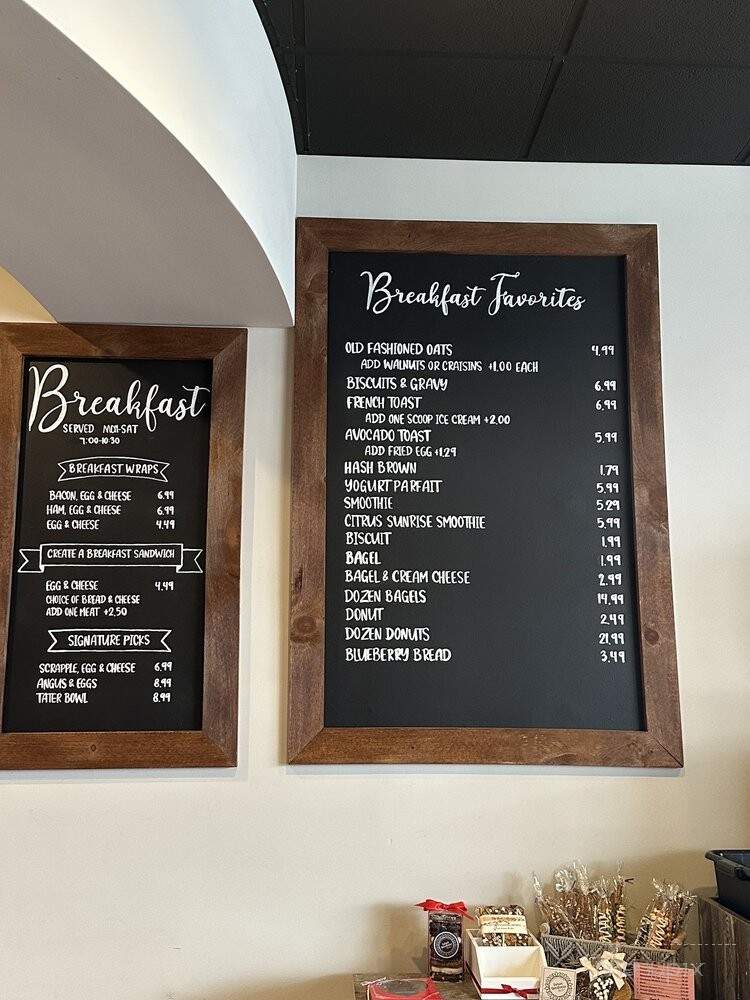 Breakfast
SERVED MON-SAT
7:00-10:30
BREAKFAST WRAPS
BACON, EGG & CHEESE 6.99
HAM, EGG & CHEESE 6.99
EGG & CHEESE 4.49
CREATE A BREAKFAST SANDWICH
EGG & CHEESE 4.49
CHOICE OF BREAD & CHEESE
ADD ONE MEAT +2.50
SIGNATURE PICKS
SCRAPPLE, EGG & CHEESE 6.99
ANGUS & EGGS 8.99
TATER BOWL 8.99
Breakfast Favorites
OLD FASHIONED OATS 4.99
ADD WALNUTS OR CRAISINS +1.00 EACH
BISCUITS & GRAVY 6.99
FRENCH TOAST 6.99
ADD ONE SCOOP ICE CREAM +2.00
AVOCADO TOAST 5.99
ADD FRIED EGG +1.29
HASH BROWN 1.79
YOGURT PARFAIT 5.99
SMOOTHIE 5.29
CITRUS SUNRISE SMOOTHIE 5.99
BISCUIT 1.99
BAGEL 1.99
BAGEL & CREAM CHEESE 2.99
DOZEN BAGELS 14.99
DONUT 2.49
DOZEN DONUTS 21.99
BLUEBERRY BREAD 3.49